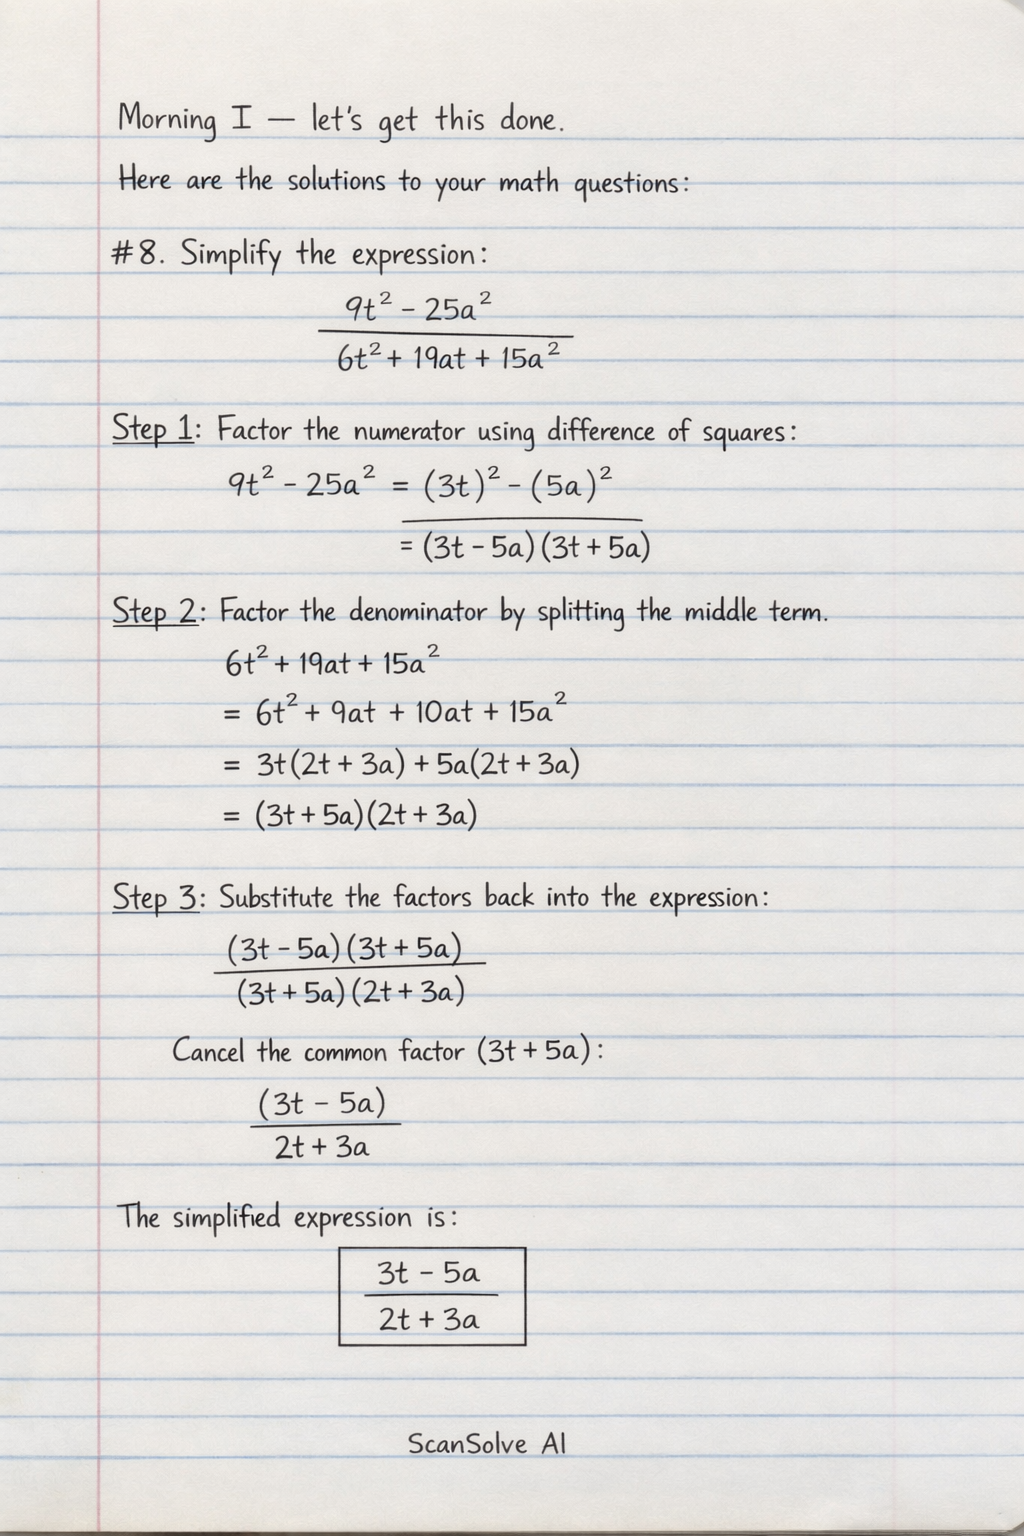 Morning I — let's get this done.
Here are the solutions to your math questions:
#8. Simplify the expression:
9t² - 25a²
6t² + 19at + 15a²
Step 1: Factor the numerator using difference of squares:
9t² - 25a² = (3t)² - (5a)²
= (3t - 5a)(3t + 5a)
Step 2: Factor the denominator by splitting the middle term.
6t² + 19at + 15a²
= 6t² + 9at + 10at + 15a²
= 3t(2t + 3a) + 5a(2t + 3a)
= (3t + 5a)(2t + 3a)
Step 3: Substitute the factors back into the expression:
(3t - 5a)(3t + 5a)
(3t + 5a)(2t + 3a)
Cancel the common factor (3t + 5a):
(3t - 5a)
2t + 3a
The simplified expression is:
3t - 5a
2t + 3a
ScanSolve AI